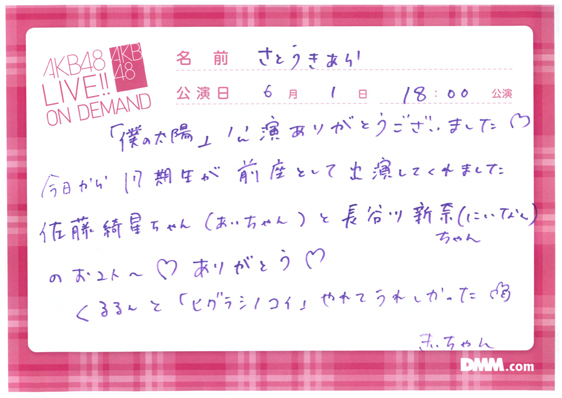 AKB48
LIVE!!
ON DEMAND
AKB
48
名前 さとうきあら
公演日 6月1日 18:00 公演
「僕の太陽」公演ありがとうございました♡
今日から17期生が前座として出演してくれました
佐藤綺星ちゃん(あいちゃん)と長谷川新奈(にいなん)
ちゃん
のお2人〜♡ありがとう♡
くるるんと「ヒグラシノコイ」やれてうれしかった
きぃちゃん
DMM.com